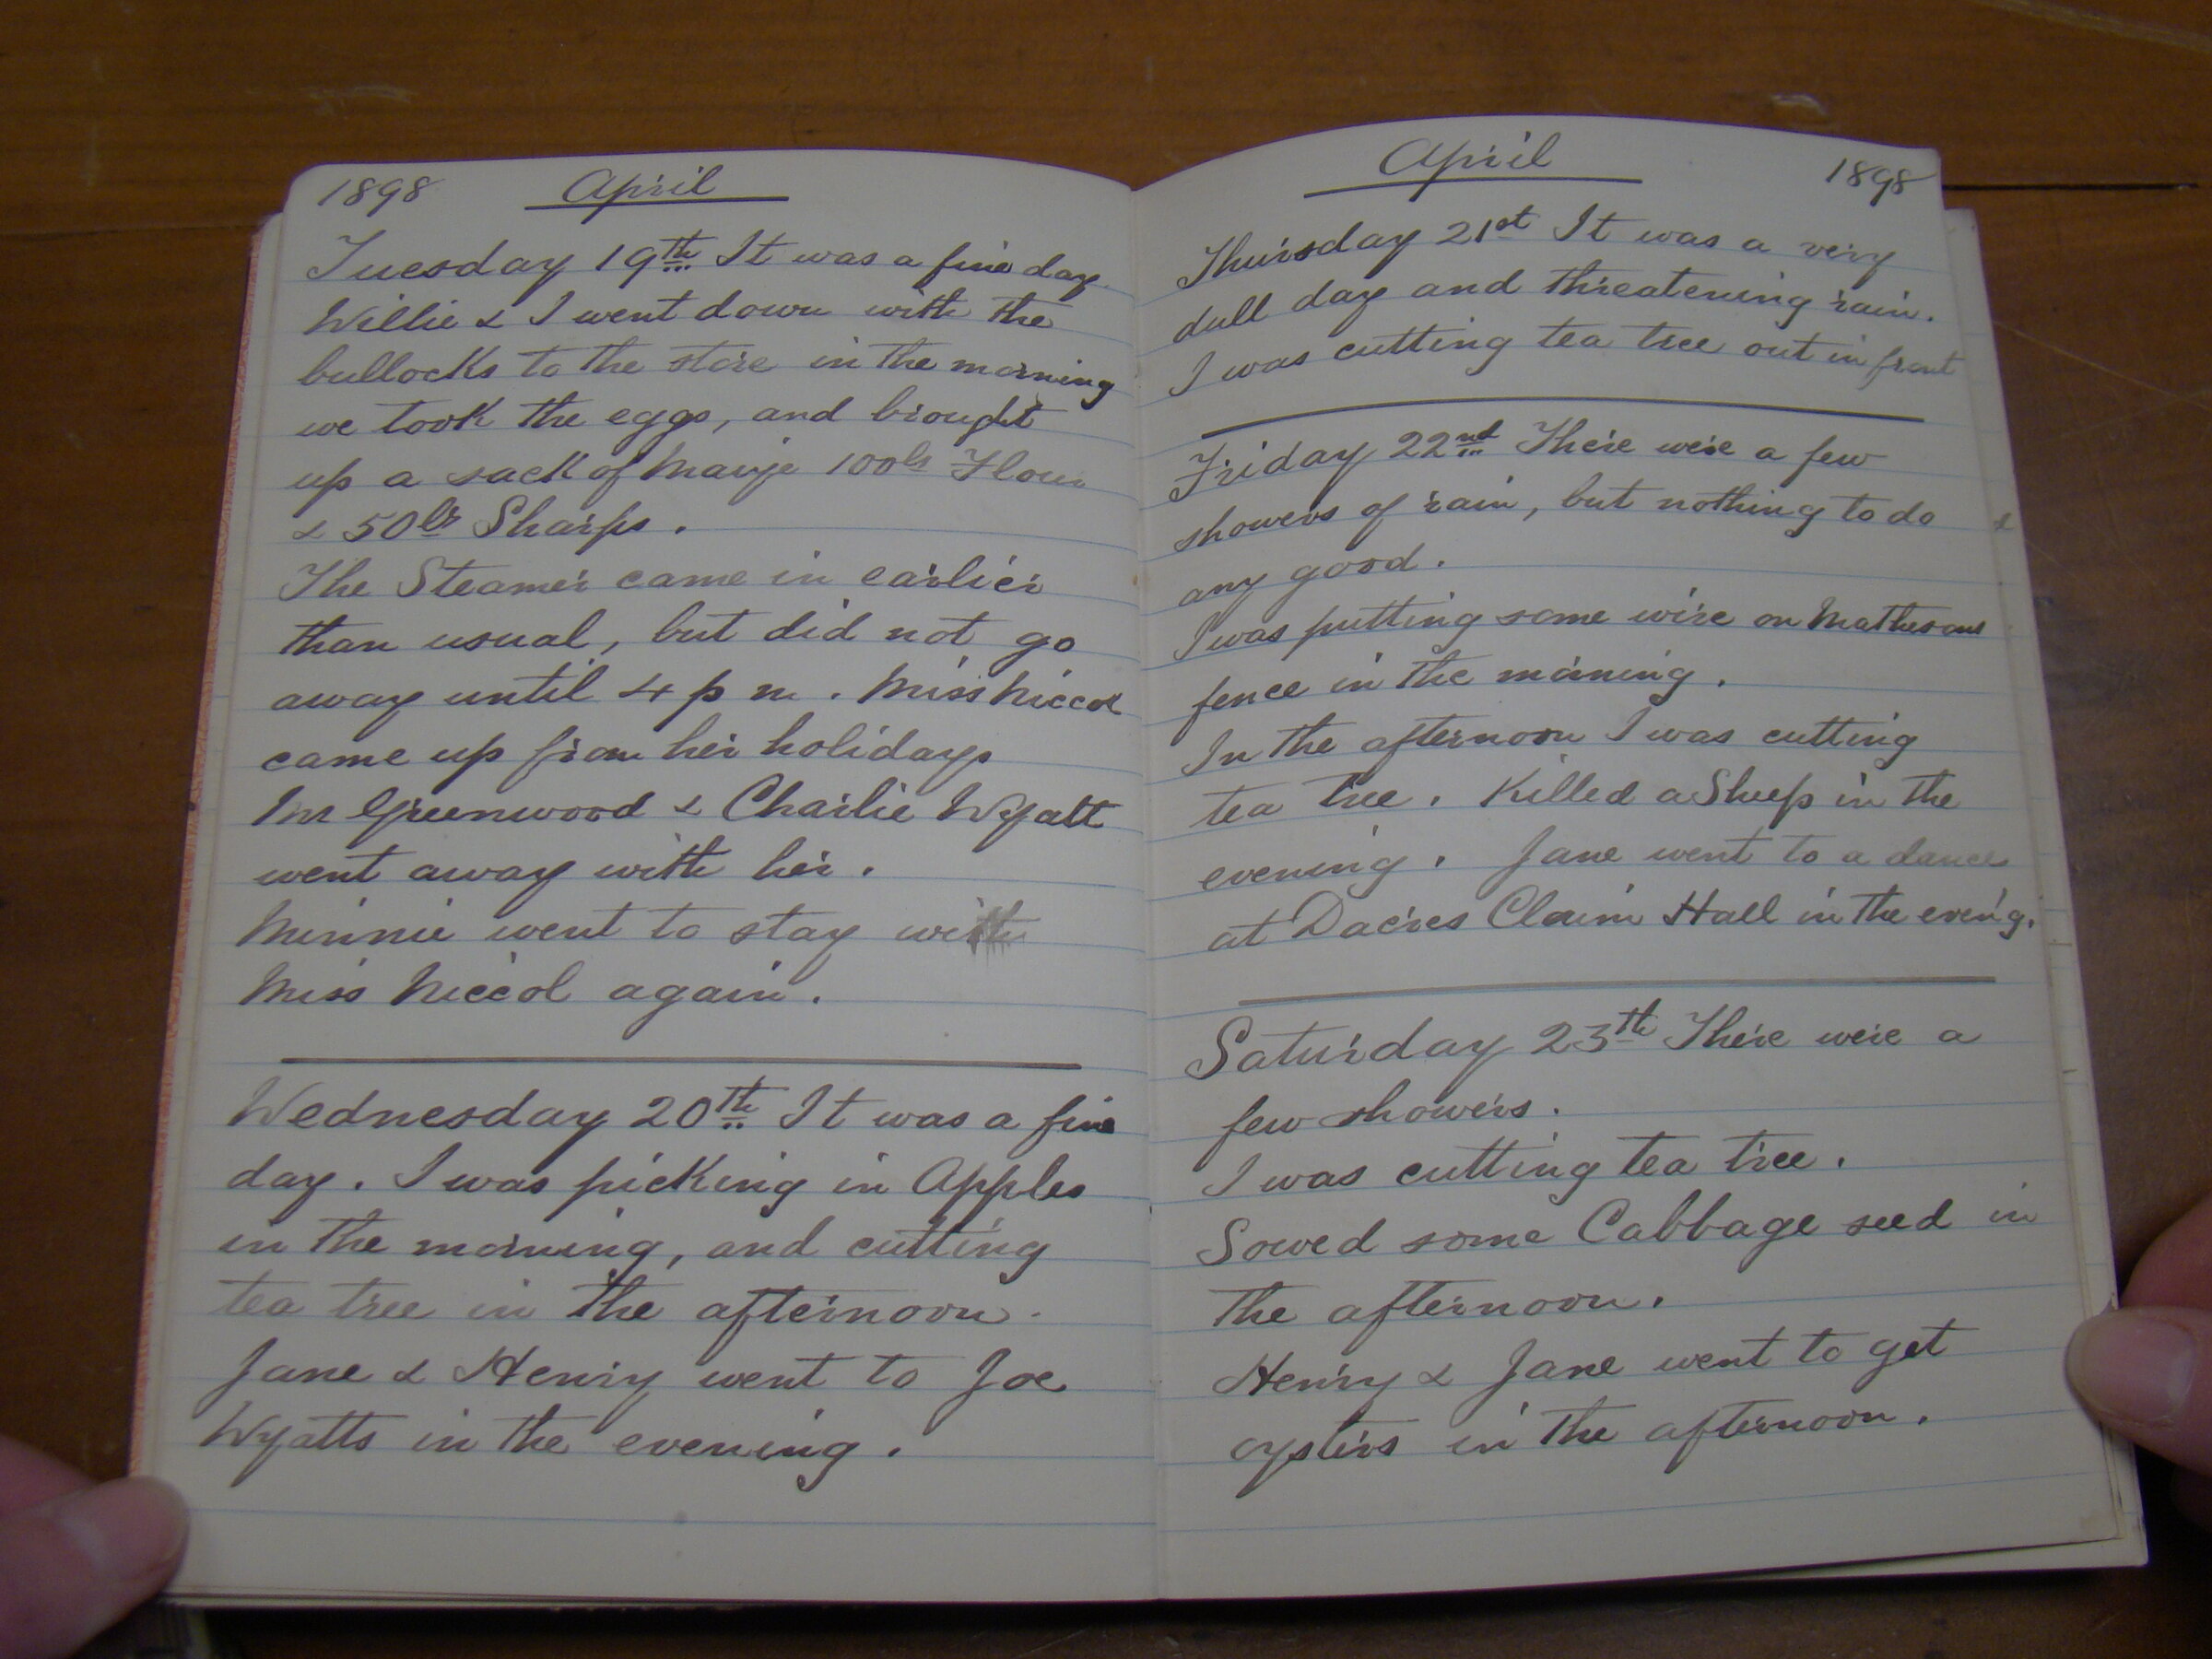 1898 April
Tuesday 19th It was a fine day
Willie & I went down with the
bullocks to the store in the morning
we took the eggs, and brought
up a sack of Maize 100lb Flour
& 50lb Sharps.
The Steamer came in earlier
than usual, but did not go
away until 4 p m. Miss Niccol
came up from her holidays
Mr Greenwood & Charlie Wyatt
went away with her.
Minnie went to stay with
Miss Niccol again.
Wednesday 20th It was a fine
day. I was picking in Apples
in the morning, and cutting
tea tree in the afternoon.
Jane & Henry went to Joe
Wyatts in the evening.
April 1898
Thursday 21st It was a very
dull day and threatening rain.
I was cutting tea tree out in front
Friday 22nd There were a few
showers of rain, but nothing to do
any good.
I was putting some wire on Mathesons
fence in the morning.
In the afternoon I was cutting
tea tree. Killed a Sheep in the
evening. Jane went to a dance
at Dacres Claim Hall in the even'g.
Saturday 23th There were a
few showers.
I was cutting tea tree.
Sowed some Cabbage seed in
the afternoon.
Henry & Jane went to get
oysters in the afternoon.